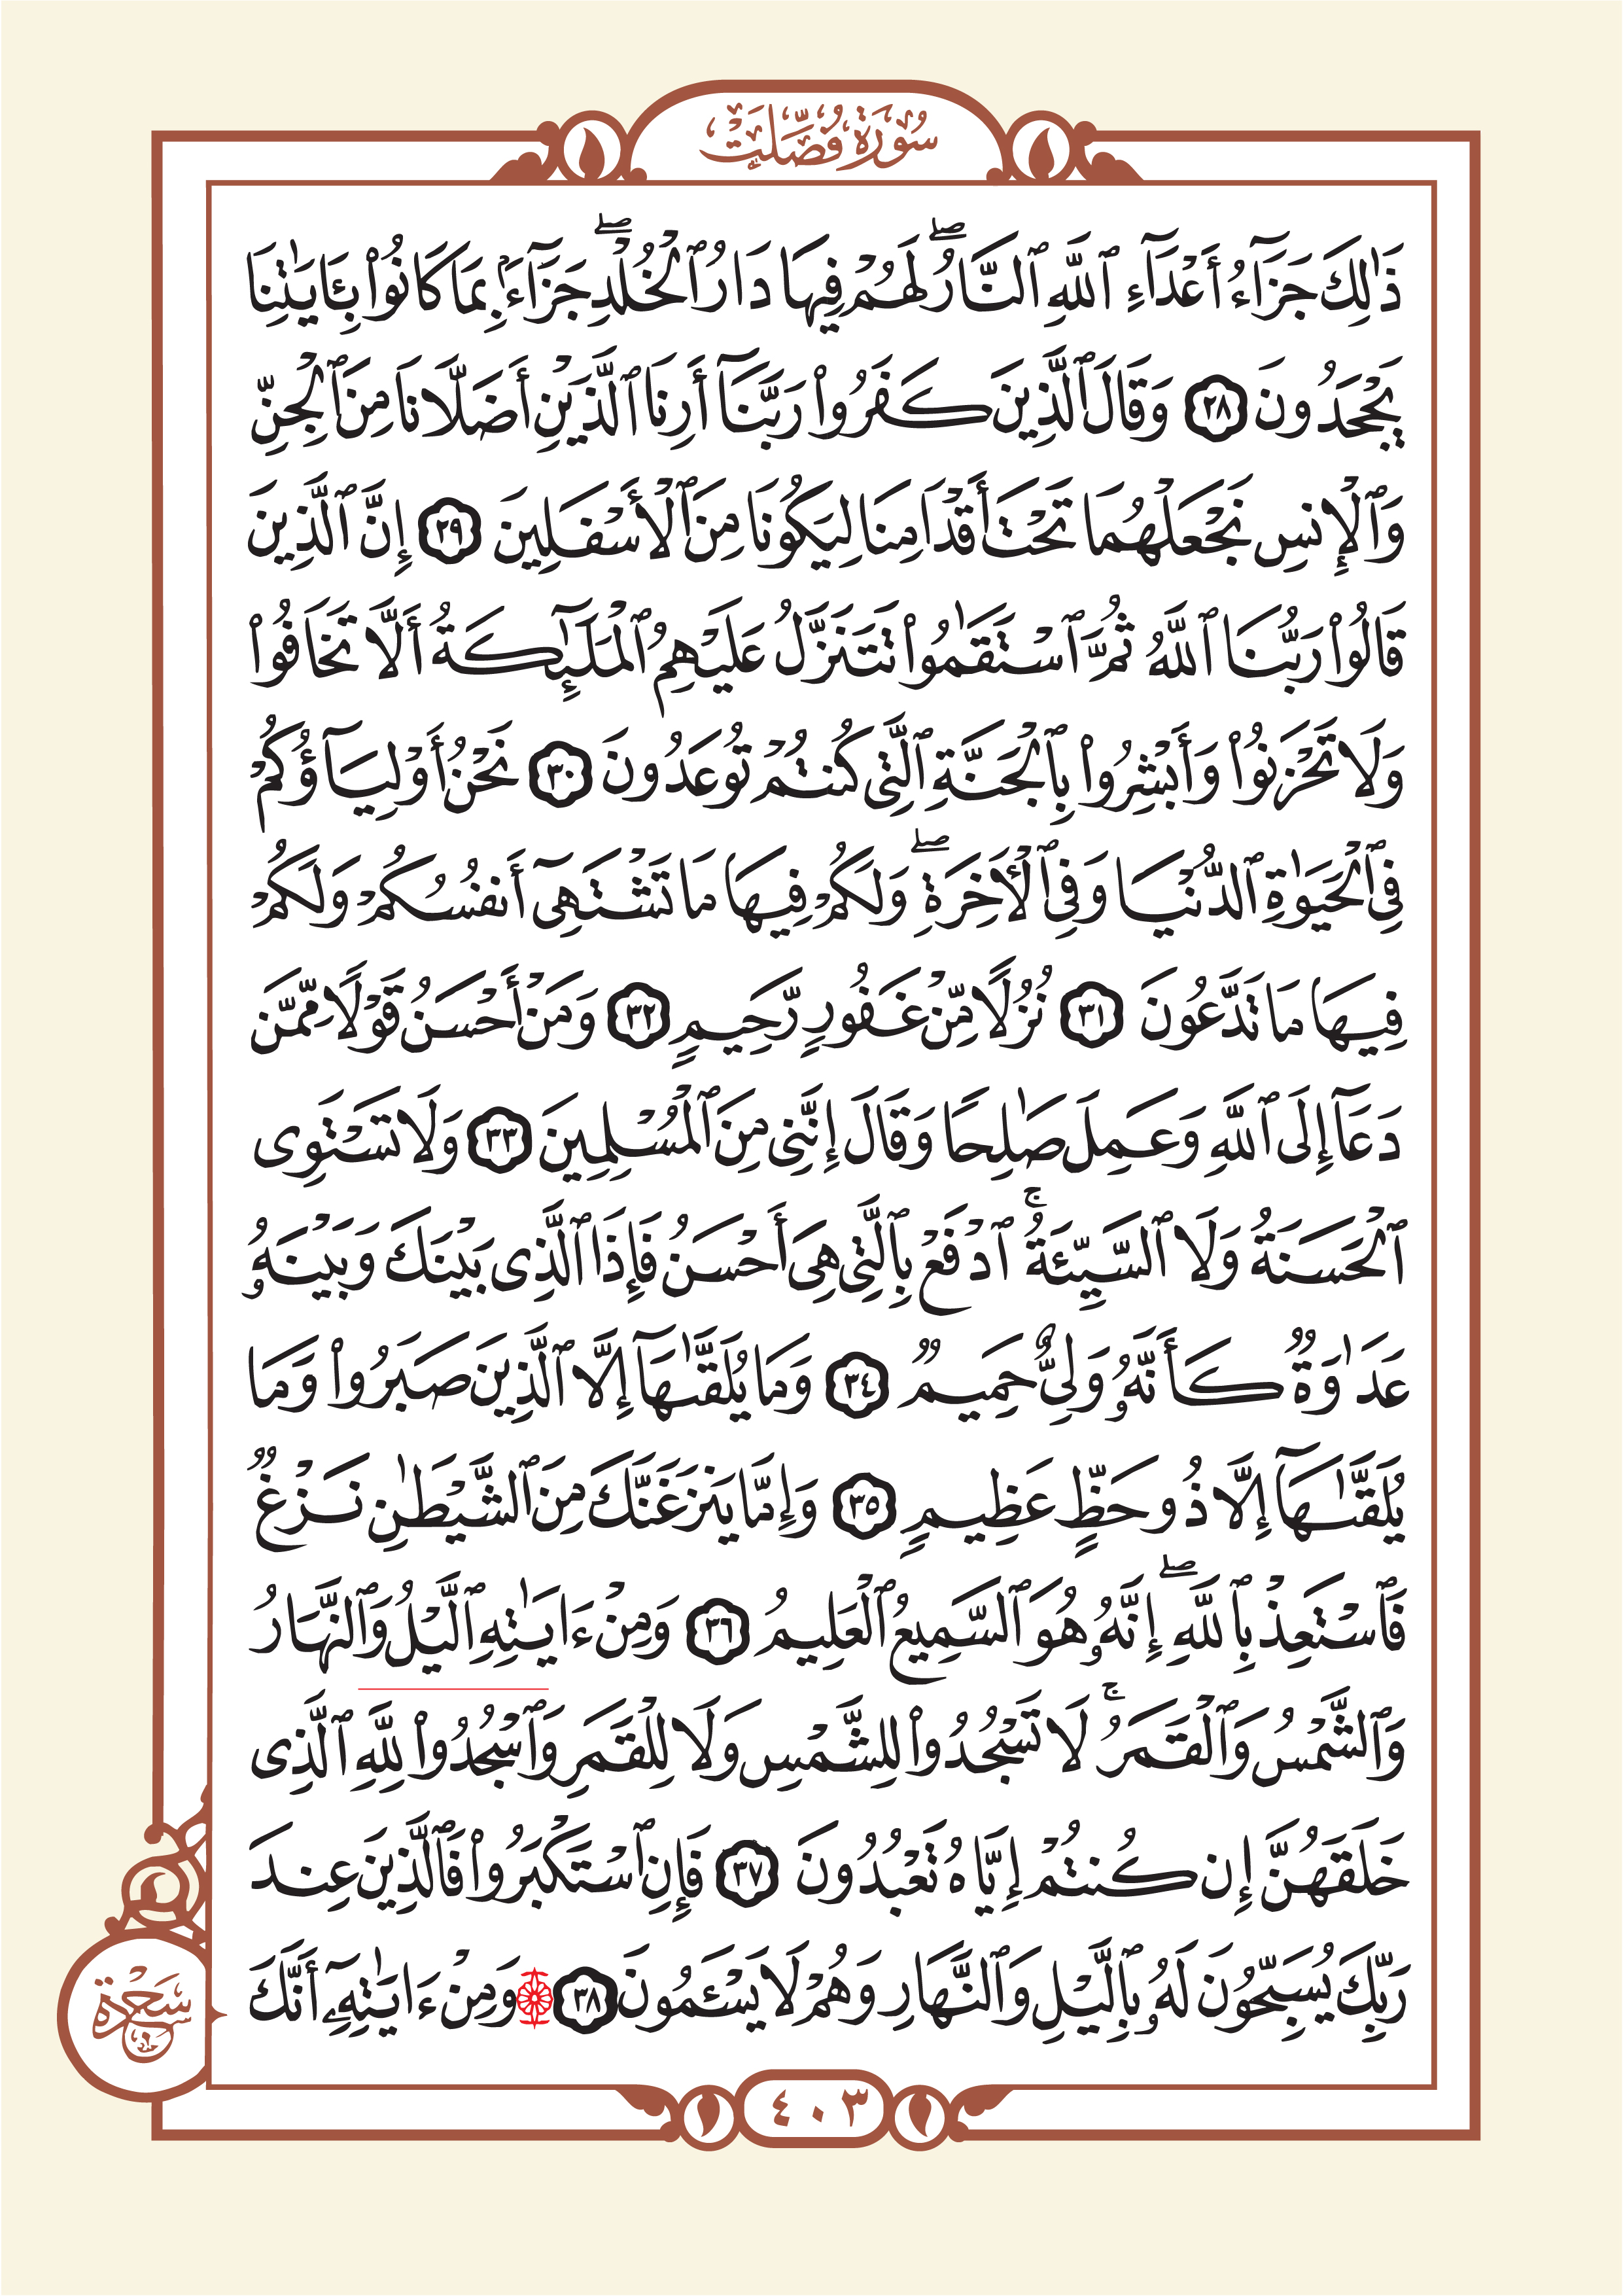 سُورَةُ فُصِّلَتْ
ذَٰلِكَ جَزَآءُ أَعْدَآءِ ٱللَّهِ ٱلنَّارُ ۖ لَهُمْ فِيهَا دَارُ ٱلْخُلْدِ ۖ جَزَآءَۢ بِمَا كَانُوا۟ بِـَٔايَـٰتِنَا
يَجْحَدُونَ ٢٨ وَقَالَ ٱلَّذِينَ كَفَرُوا۟ رَبَّنَآ أَرِنَا ٱلَّذَيْنِ أَضَلَّانَا مِنَ ٱلْجِنِّ
وَٱلْإِنسِ نَجْعَلْهُمَا تَحْتَ أَقْدَامِنَا لِيَكُونَا مِنَ ٱلْأَسْفَلِينَ ٢٩ إِنَّ ٱلَّذِينَ
قَالُوا۟ رَبُّنَا ٱللَّهُ ثُمَّ ٱسْتَقَـٰمُوا۟ تَتَنَزَّلُ عَلَيْهِمُ ٱلْمَلَـٰٓئِكَةُ أَلَّا تَخَافُوا۟
وَلَا تَحْزَنُوا۟ وَأَبْشِرُوا۟ بِٱلْجَنَّةِ ٱلَّتِى كُنتُمْ تُوعَدُونَ ٣٠ نَحْنُ أَوْلِيَآؤُكُمْ
فِى ٱلْحَيَوٰةِ ٱلدُّنْيَا وَفِى ٱلْـَٔاخِرَةِ ۖ وَلَكُمْ فِيهَا مَا تَشْتَهِىٓ أَنفُسُكُمْ وَلَكُمْ
فِيهَا مَا تَدَّعُونَ ٣١ نُزُلًا مِّنْ غَفُورٍ رَّحِيمٍ ٣٢ وَمَنْ أَحْسَنُ قَوْلًا مِّمَّن
دَعَآ إِلَى ٱللَّهِ وَعَمِلَ صَـٰلِحًا وَقَالَ إِنَّنِى مِنَ ٱلْمُسْلِمِينَ ٣٣ وَلَا تَسْتَوِى
ٱلْحَسَنَةُ وَلَا ٱلسَّيِّئَةُ ۚ ٱدْفَعْ بِٱلَّتِى هِىَ أَحْسَنُ فَإِذَا ٱلَّذِى بَيْنَكَ وَبَيْنَهُۥ
عَدَٰوَةٌ كَأَنَّهُۥ وَلِىٌّ حَمِيمٌ ٣٤ وَمَا يُلَقَّىٰهَآ إِلَّا ٱلَّذِينَ صَبَرُوا۟ وَمَا
يُلَقَّىٰهَآ إِلَّا ذُو حَظٍّ عَظِيمٍ ٣٥ وَإِمَّا يَنزَغَنَّكَ مِنَ ٱلشَّيْطَـٰنِ نَزْغٌ
فَٱسْتَعِذْ بِٱللَّهِ ۖ إِنَّهُۥ هُوَ ٱلسَّمِيعُ ٱلْعَلِيمُ ٣٦ وَمِنْ ءَايَـٰتِهِ ٱلَّيْلُ وَٱلنَّهَارُ
وَٱلشَّمْسُ وَٱلْقَمَرُ ۚ لَا تَسْجُدُوا۟ لِلشَّمْسِ وَلَا لِلْقَمَرِ وَٱسْجُدُوا۟ لِلَّهِ ٱلَّذِى
خَلَقَهُنَّ إِن كُنتُمْ إِيَّاهُ تَعْبُدُونَ ٣٧ فَإِنِ ٱسْتَكْبَرُوا۟ فَٱلَّذِينَ عِندَ
رَبِّكَ يُسَبِّحُونَ لَهُۥ بِٱلَّيْلِ وَٱلنَّهَارِ وَهُمْ لَا يَسْـَٔمُونَ ٣٨ ۩ وَمِنْ ءَايَـٰتِهِۦٓ أَنَّكَ
سَجْدَة
٤٠٣